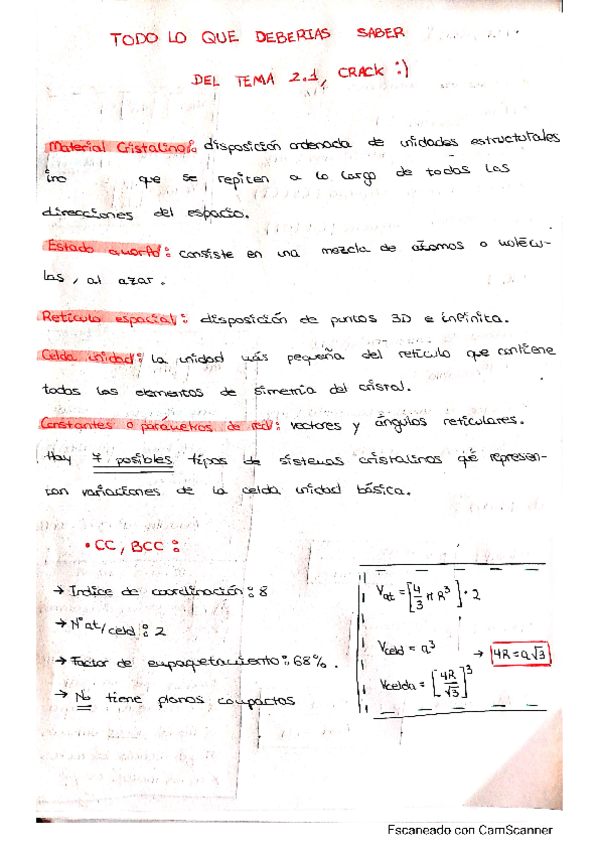 TODO LO QUE DEBERIAS SABER
DEL TEMA 2.1, CRACK :)
Material Cristalino: disposición ordenada de unidades estructurales
que se repiten a lo largo de todas las
direcciones del espacio.
Estado amorfo: consiste en una mezcla de átomos o molécu-
las, al azar.
Retículo espacial: disposición de puntos 3D e infinita.
Celda unidad: la unidad más pequeña del retículo que contiene
todos los elementos de simetría del cristal.
Constantes o parámetros de red: vectores y ángulos reticulares.
Hay 7 posibles tipos de sistemas cristalinos qe represen-
tan variaciones de la celda unidad básica.
• CC, BCC:
→ Indice de coordinación: 8
→ Nºat/celd: 2
→ Factor de empaquetamiento: 68%.
→ No tiene planos compactos
Vat = [4/3 π R³] · 2
Vceld = a³ → 4R = a√3
Vcelda = [4R/√3]³
Escaneado con CamScanner